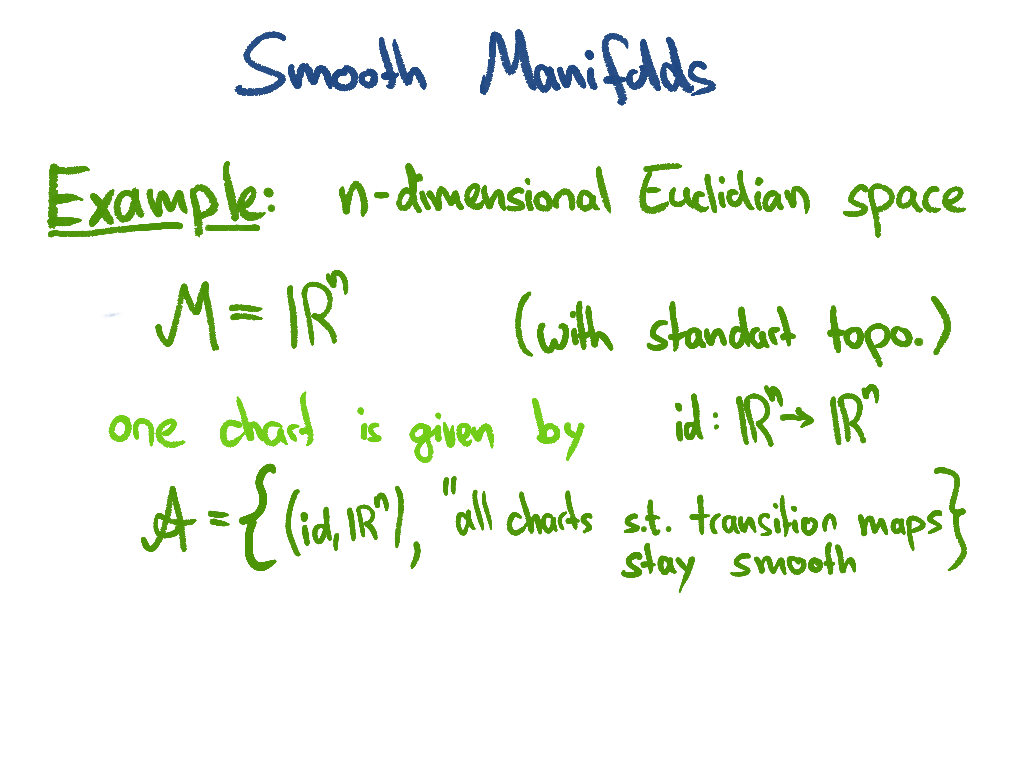 Smooth Manifolds
Example: n-dimensional Euclidian space
M = ℝⁿ (with standart topo.)
one chart is given by id: ℝⁿ → ℝⁿ
A = {(id, ℝⁿ), "all charts s.t. transition maps
stay smooth}